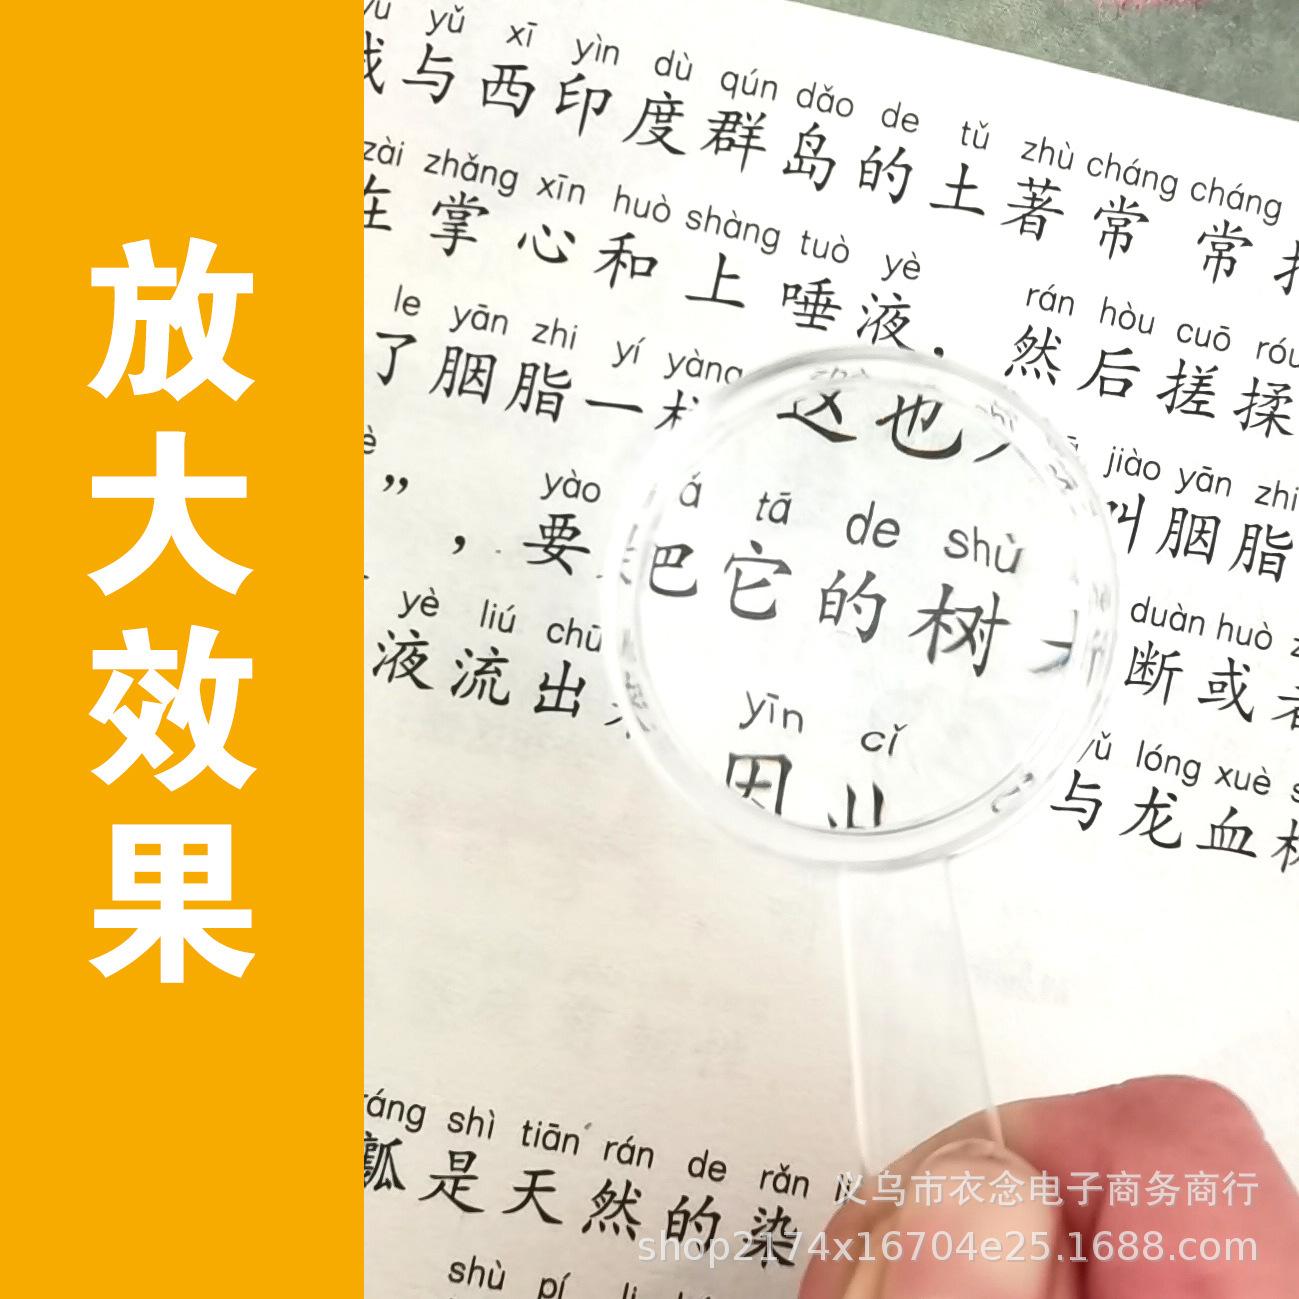 放
大
效
果
yǔ xī yìn dù qún dǎo de tǔ zhù cháng cháng
与西印度群岛的土著常常
zài zhǎng xīn huò shàng tuò yè rán hòu cuō
在掌心和上唾液，然后搓揉
le yān zhi yí yàng
了胭脂一样
这也
jiào yān zhi
叫胭脂
yào tā de shù
”，要把它的树
duàn huò
断或
yè liú chū
液流出
yīn cǐ
因此
yǔ lóng xuè
与龙血
shì tiān rán de rǎn
瓤是天然的染
shù pí
义乌市衣念电子商务商行
shop2174x16704e25.1688.com